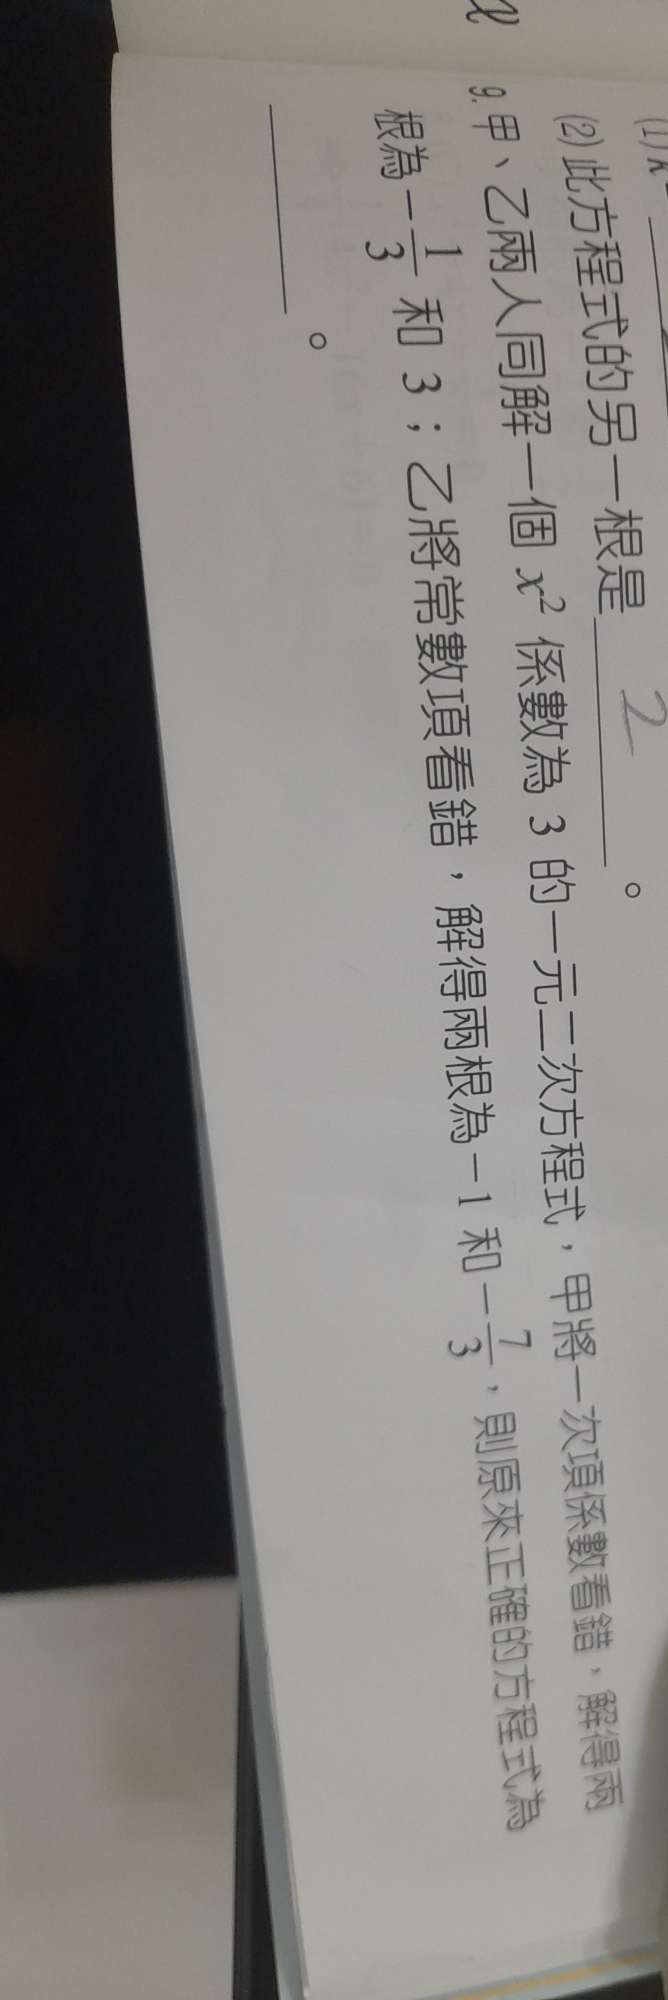 (1)
(2) 此方程式的另一根是 2 。
9. 甲、乙兩人同解一個 x² 係數為 3 的一元二次方程式，甲將一次項係數看錯，解得兩
根為 −1/3 和 3；乙將常數項看錯，解得兩根為 −1 和 −7/3，則原來正確的方程式為
。